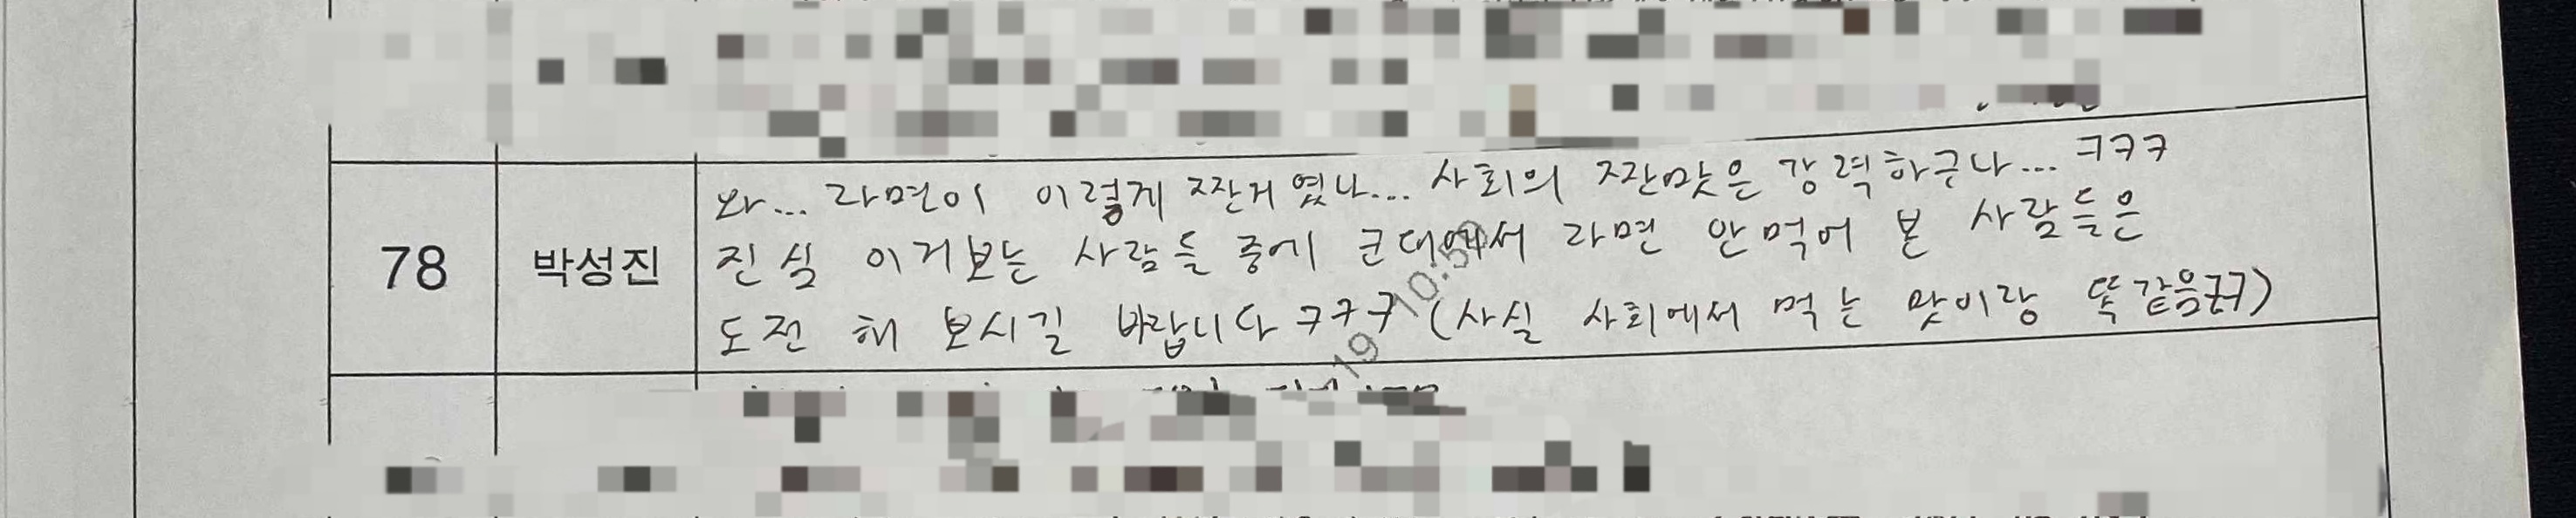 와... 라면이 이렇게 짠거 였나... 사회의 짠맛은 강력하구나... ㅋㅋㅋ
78 박성진 진심 이거보는 사람들 중에 군대에서 라면 안먹어 본 사람들은
도전 해 보시길 바랍니다 ㅋㅋㅋ (사실 사회에서 먹는 맛이랑 똑같음ㅋㅋ)
19 10:59